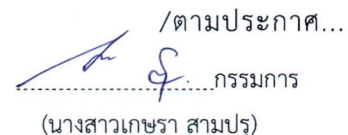 /ตามประกาศ...
กรรมการ
(นางสาวเกษรา สามปรุ)